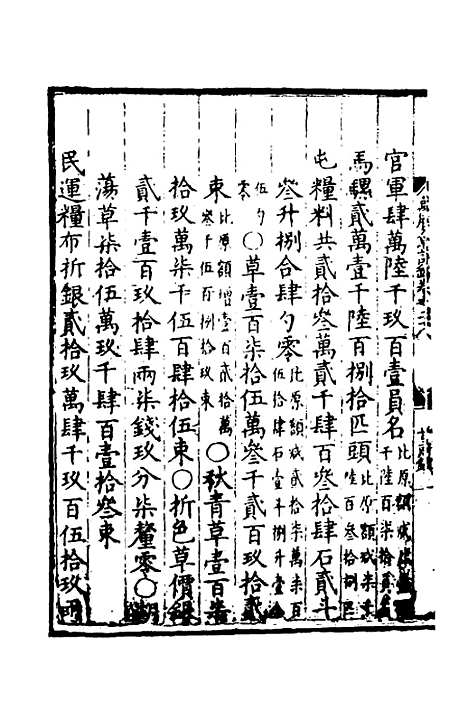 官軍肆萬陸千玖百壹員名比原額減
千陸百柒拾
馬騾貳萬壹千陸百捌拾匹頭比原額減柒千
陸百叄拾捌匹
屯糧料共貳拾叄萬貳千肆百叄拾肆石貳斗
叄升捌合肆勺零比原額減貳拾柒萬柒百
伍拾肆石壹斗捌升壹合
伍勺零○草壹百柒拾伍萬叄千貳百玖拾貳
束比原額增壹百貳拾萬
叄千伍百捌拾玖束○秋青草壹百
拾玖萬柒千伍百肆拾伍束○折色草價銀
貳千壹百玖拾肆兩柒錢玖分柒釐零○湖
蕩草柒拾伍萬玖千肆百壹拾叄束
民運糧布折銀貳拾玖萬肆千玖百伍拾玖兩